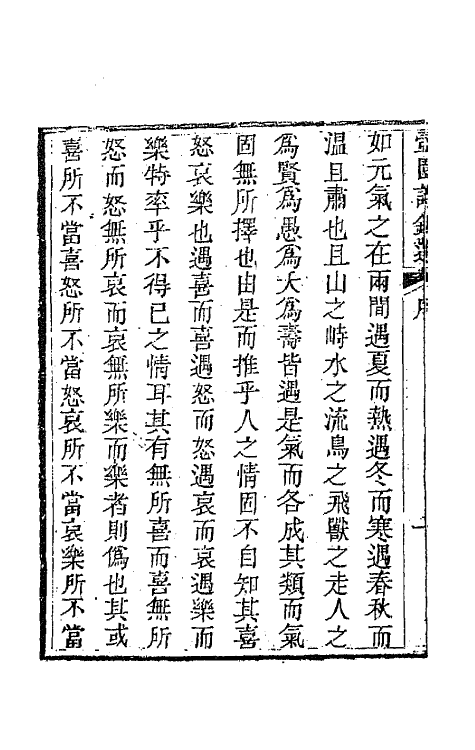 壺園詩鈔選 序
如元氣之在兩間遇夏而熱遇冬而寒遇春秋而
温且肅也且山之峙水之流鳥之飛獸之走人之
爲賢爲愚爲夭爲壽皆遇是氣而各成其類而氣
固無所擇也由是而推乎人之情固不自知其喜
怒哀樂也遇喜而喜遇怒而怒遇哀而哀遇樂而
樂特率乎不得已之情耳其有無所喜而喜無所
怒而怒無所哀而哀無所樂而樂者則僞也其或
喜所不當喜怒所不當怒哀所不當哀樂所不當